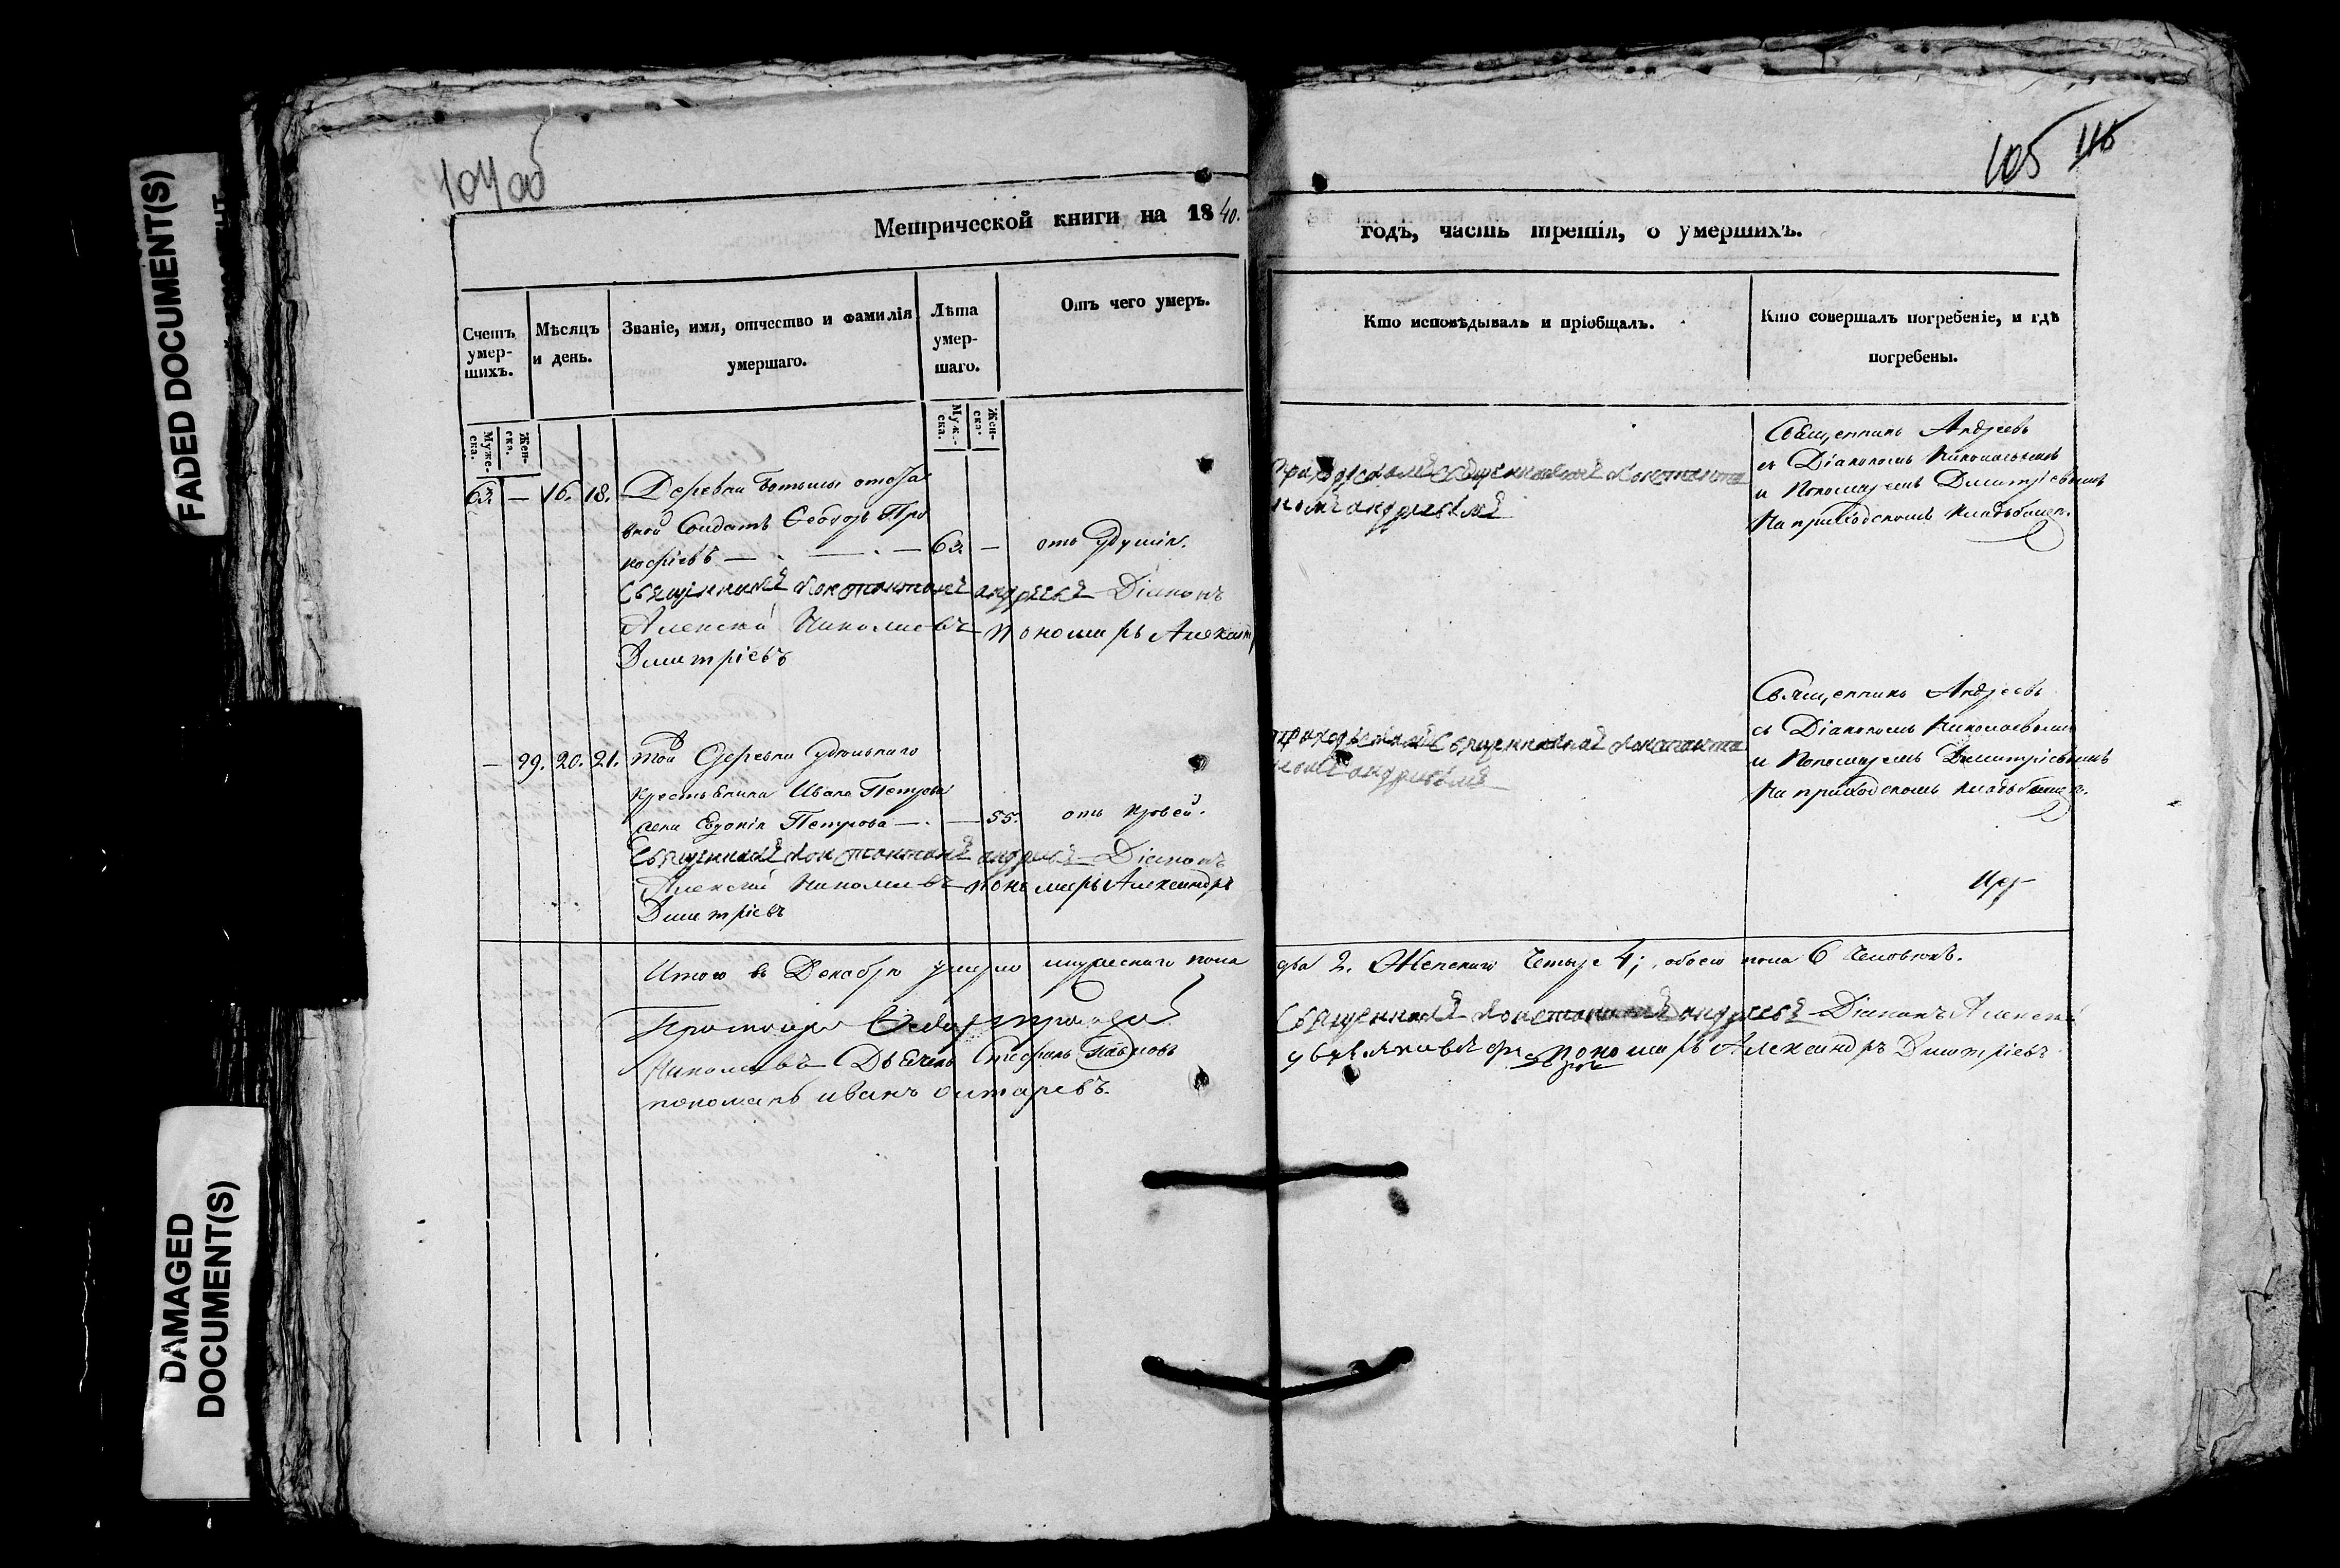 FADED DOCUMENT(S)
DAMAGED
DOCUMENT(S)
104 об
105 116
Метрической книги на 1840.
годъ, часть третія, о умершихъ.
Счетъ умер-шихъ.
Мѣсяцъ и день.
Званіе, имя, отчество и фамилія умершаго.
Лѣта умер-шаго.
Отъ чего умеръ.
Кто исповѣдывалъ и пріобщалъ.
Кто совершалъ погребеніе, и гдѣ погребены.
Муже-ска.
Жен-ска.
Муж.-ска.
Жен-ска.
63. — 16. 18. Деревни
вной Солдатъ Ѳеодоръ Про
кофіевъ — 63. — отъ удушія.
Священникъ Константинъ Андреевъ Діаконъ
Алексѣй Николаевъ Пономарь Александръ
Димитріевъ
Приходскимъ священникомъ Константи
номъ Андреевымъ
Священникъ Андреевъ
съ Діакономъ Николаевымъ
и Пономаремъ Димитріевымъ
На приходскомъ кладбищѣ.
— 99. 20. 21. Той Деревни удѣльнаго
крестьянина Ивана Петрова
жена Евдокія Петрова — 55. отъ кровей.
Священникъ Константинъ Андреевъ Діаконъ
Алексѣй Николаевъ Пономарь Александръ
Димитріевъ
приходскимъ Священникомъ Константи
номъ Андреевымъ
Священникъ Андреевъ
съ Діакономъ Николаевымъ
и Пономаремъ Димитріевымъ
На приходскомъ кладбищѣ.
Итого въ Декабрѣ умерло мужескаго пола
два 2. Женскаго Четыре 4; обоего пола 6 Человѣкъ.
Николаевъ Дьячекъ Стефанъ Павловъ
пономарь иванъ
Священникъ Константинъ Андреевъ Діаконъ Алексѣй
пономарь Александръ Димитріевъ